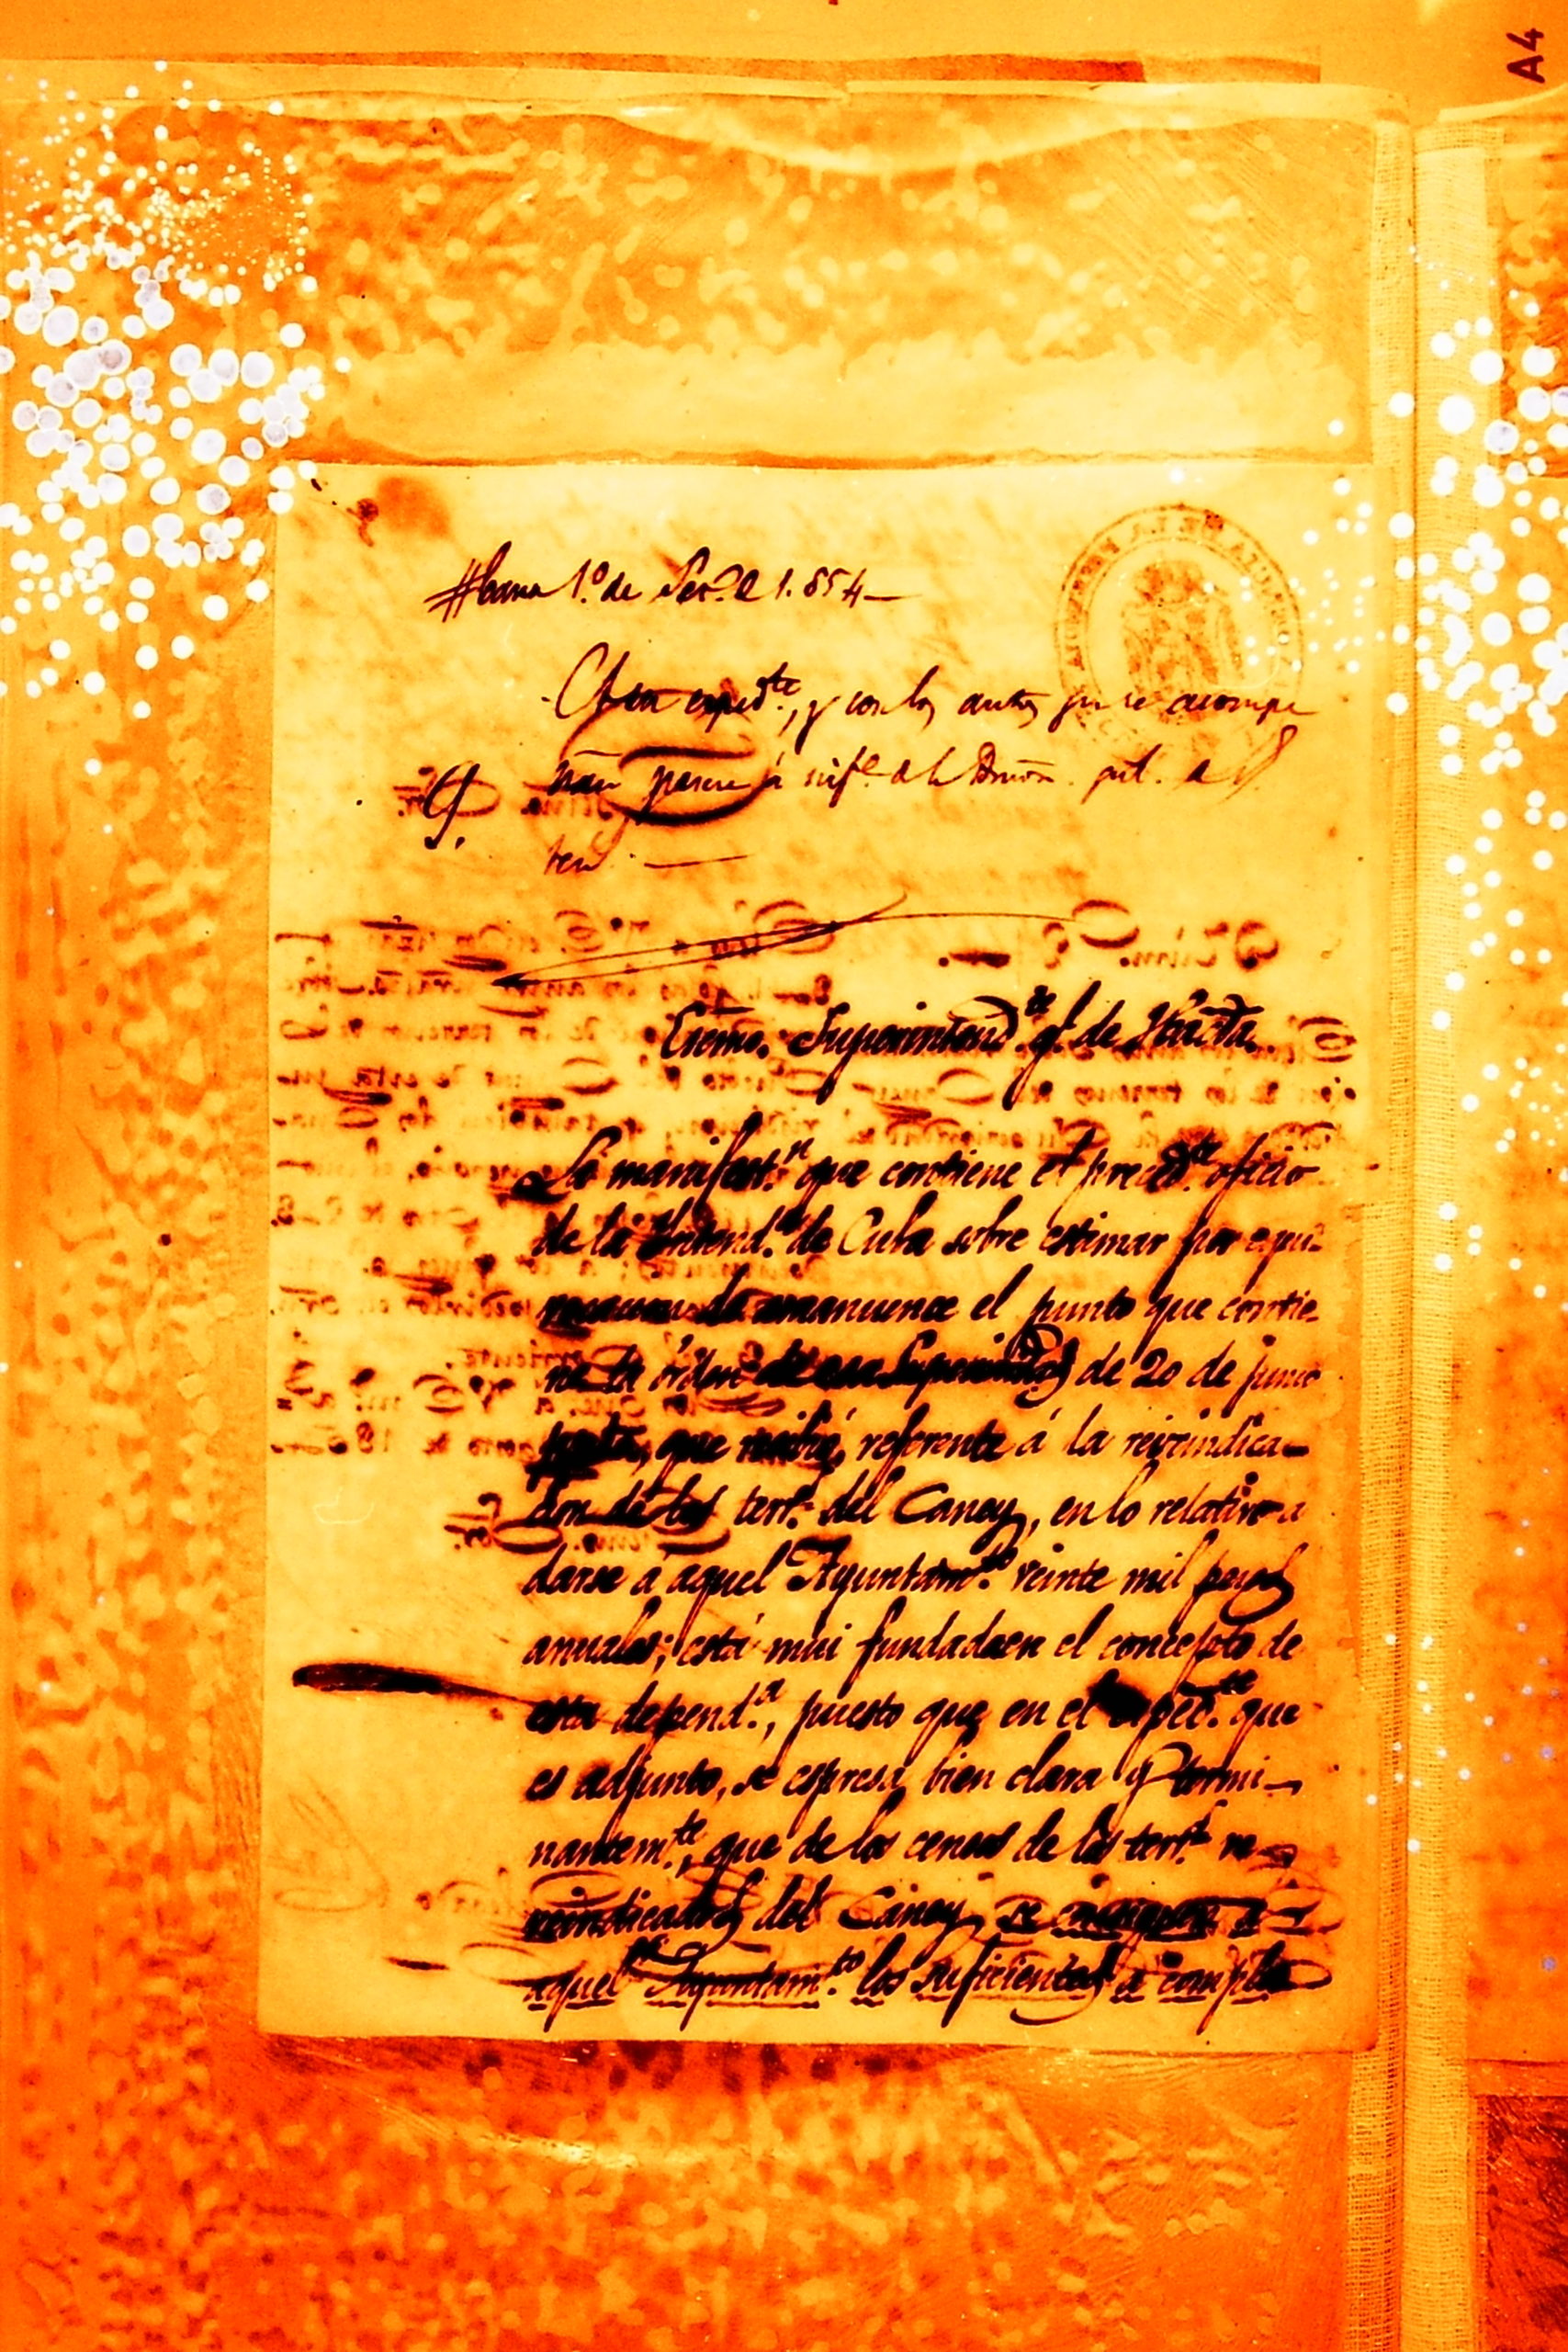 A4
Habana 1.º de Set.e 1.854—
Con exped.te, y con los antes que se acompa
ñan pase á inf.e de la Admon. gral. de
G.
Exmo. Superintend.te g.l de Haćda.
La manifest.n que contiene el preced.te oficio
de la Yntend.a de Cuba sobre estimar por equi-
de amanuence el punto que contie-
ne la órden de esa Superintend.a de 20 de junio
que recibió, referente á la reivindica-
cion de los terr.s del Caney, en lo relativo a
darse á aquel Ayuntam.to veinte mil pesos
anuales; está mui fundado en el concepto de
esta depend.a, puesto que en el esped.te que
es adjunto, se espresa bien clara y termi-
nantem.te, que de los censos de los terr.s re-
vindicados del Caney, se
aquel Ayuntam.to los suficientes a comple